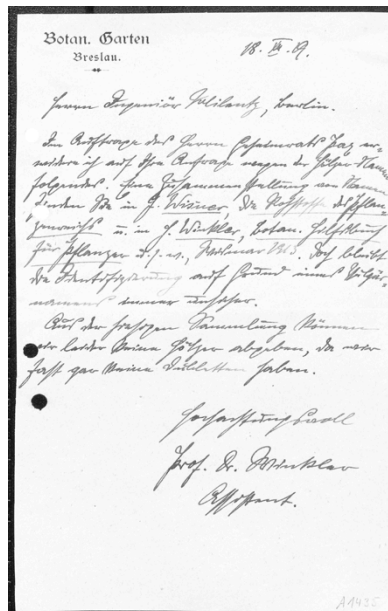 Botan. Garten
Breslau.
18. XII. 19.
Herrn Ingeniör Milentz, Berlin.
Im Auftrage des Herrn Geheimrats Pax er-
widere ich auf Ihre Anfrage wegen der Hölzer-Namen
folgendes. Eine Zusammenstellung von Namen
finden Sie in J. Wiesner, Die Rohstoffe des Pflan-
zenreichs u. in H. Winkler, Botan. Hilfsbuch
für Pflanzer u.s.w., Wismar 1913. Doch bleibt
die Identifizierung auf Grund eines Vulgär-
namens immer unsicher.
Aus der hiesigen Sammlung können
wir leider keine Hölzer abgeben, da wir
fast gar keine Dubletten haben.
Hochachtungsvoll
Prof. Dr. Winkler
Assistent.
A1435